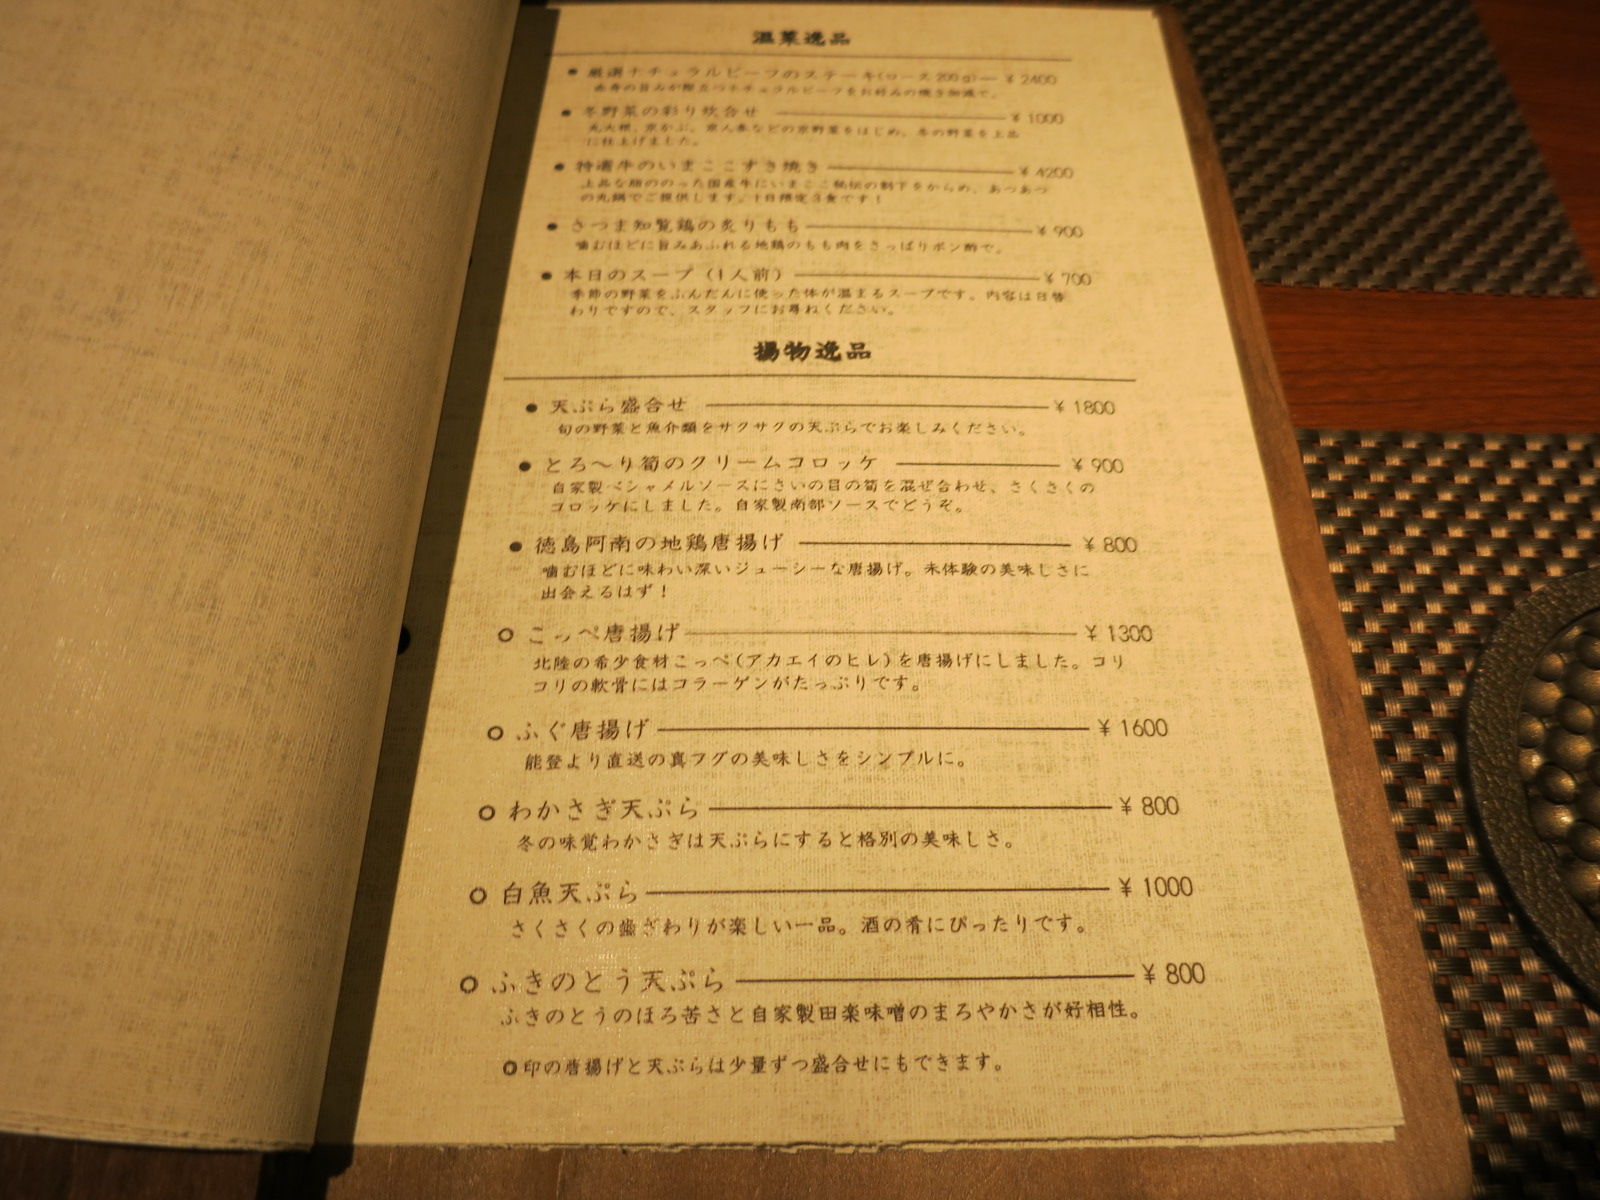 温菜逸品
● 厳選ナチュラルビーフのステーキ(ロース200g) ¥2400
赤身の旨みが際立つナチュラルビーフをお好みの焼き加減で。
● 冬野菜の彩り炊合せ ¥1000
丸大根、京かぶ、京人参などの京野菜をはじめ、冬の野菜を上品
に仕上げました。
● 特選牛のいまここすき焼き ¥4200
上品な脂ののった国産牛にいまここ秘伝の割下をからめ、あつあつ
の丸鍋でご提供します。1日限定3食です！
● さつま知覧鶏の炙りもも ¥900
噛むほどに旨みあふれる地鶏のもも肉をさっぱりポン酢で。
● 本日のスープ（1人前） ¥700
季節の野菜をふんだんに使った体が温まるスープです。内容は日替
わりですので、スタッフにお尋ねください。
揚物逸品
● 天ぷら盛合せ ¥1800
旬の野菜と魚介類をサクサクの天ぷらでお楽しみください。
● とろ～り筍のクリームコロッケ ¥900
自家製ベシャメルソースにさいの目の筍を混ぜ合わせ、さくさくの
コロッケにしました。自家製南部ソースでどうぞ。
● 徳島阿南の地鶏唐揚げ ¥800
噛むほどに味わい深いジューシーな唐揚げ。未体験の美味しさに
出会えるはず！
○ こっぺ唐揚げ ¥1300
北陸の希少食材こっぺ(アカエイのヒレ)を唐揚げにしました。コリ
コリの軟骨にはコラーゲンがたっぷりです。
○ ふぐ唐揚げ ¥1600
能登より直送の真フグの美味しさをシンプルに。
○ わかさぎ天ぷら ¥800
冬の味覚わかさぎは天ぷらにすると格別の美味しさ。
○ 白魚天ぷら ¥1000
さくさくの歯ざわりが楽しい一品。酒の肴にぴったりです。
○ ふきのとう天ぷら ¥800
ふきのとうのほろ苦さと自家製田楽味噌のまろやかさが好相性。
○印の唐揚げと天ぷらは少量ずつ盛合せにもできます。